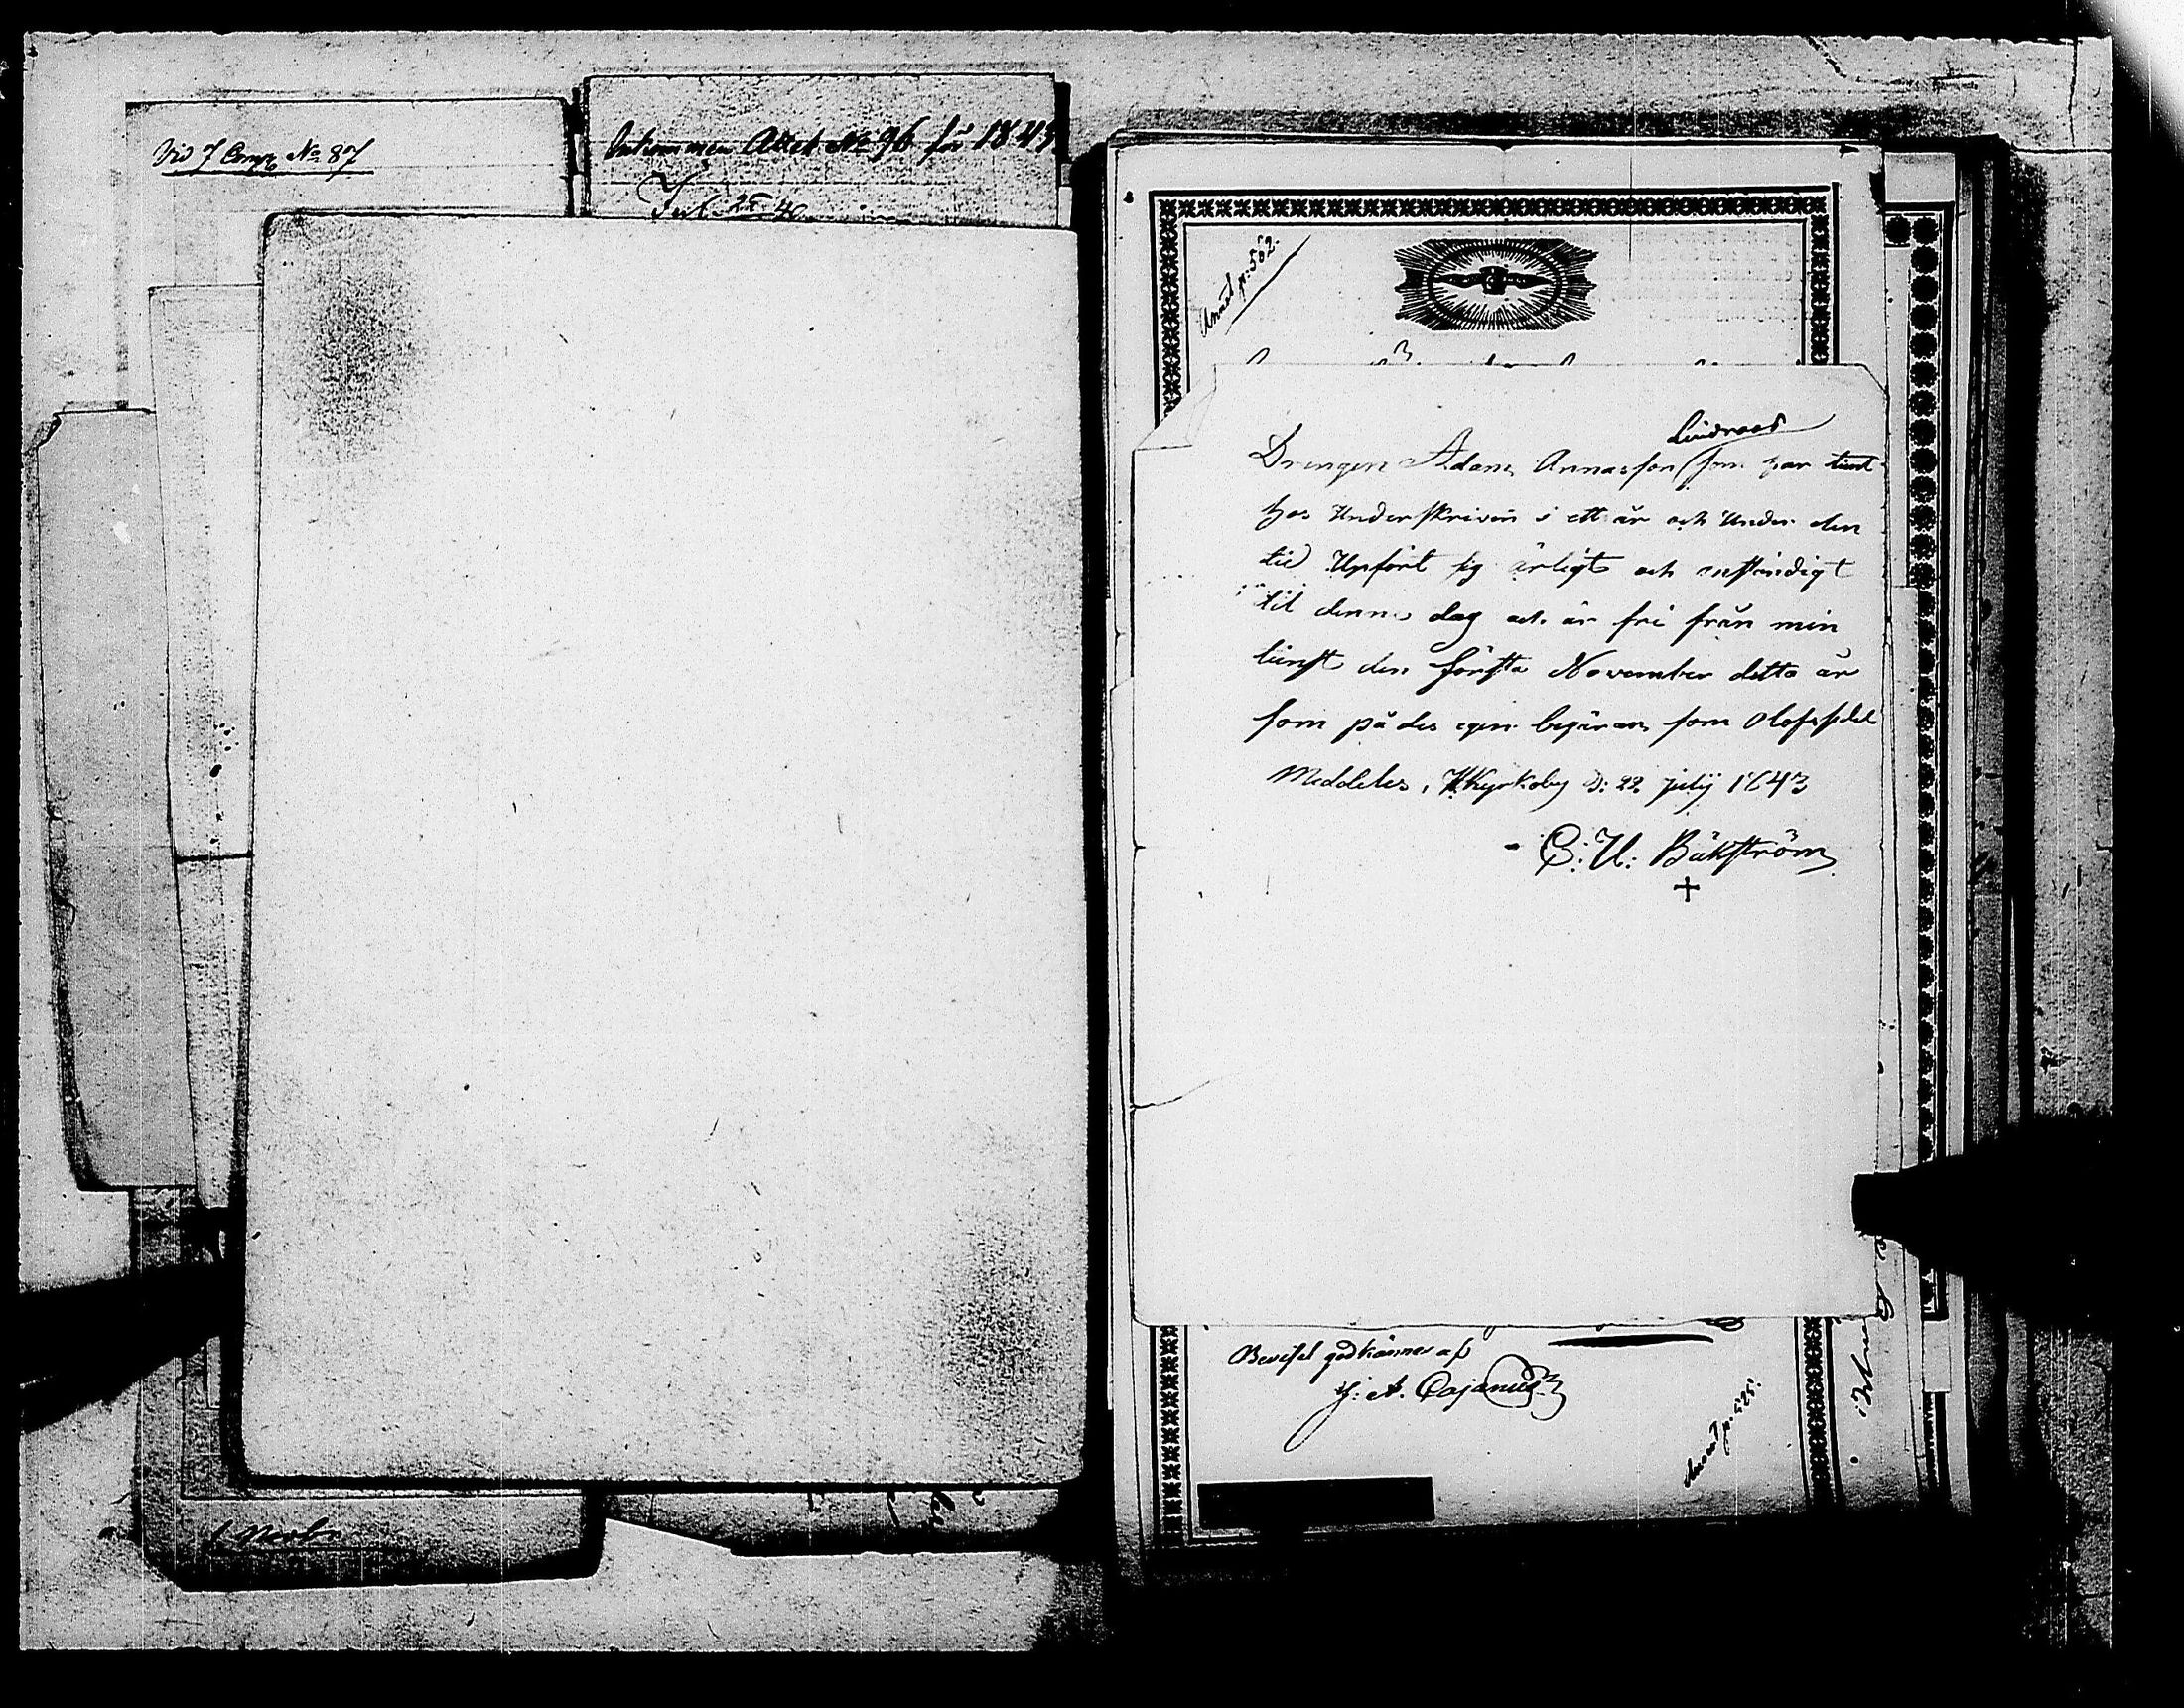 Vid 7 Comp. No 87
Inkommen Attest No 96 för 1843
Annot p: 562.
Lindroos
Drengen Adam Annasson som har tient
hos Underskriven i ett år och Under den
tid Upfört sig ärligt och anständigt
til denna dag och är fri från min
tienst den första November detta år
som på des egen begäran som Olofsedel
Meddeles, Kyrkoby D: 22 julij 1843
C: U: Bäkström
+
Beviset godkännes af
J: A. Cajanus
Annot p. 225.